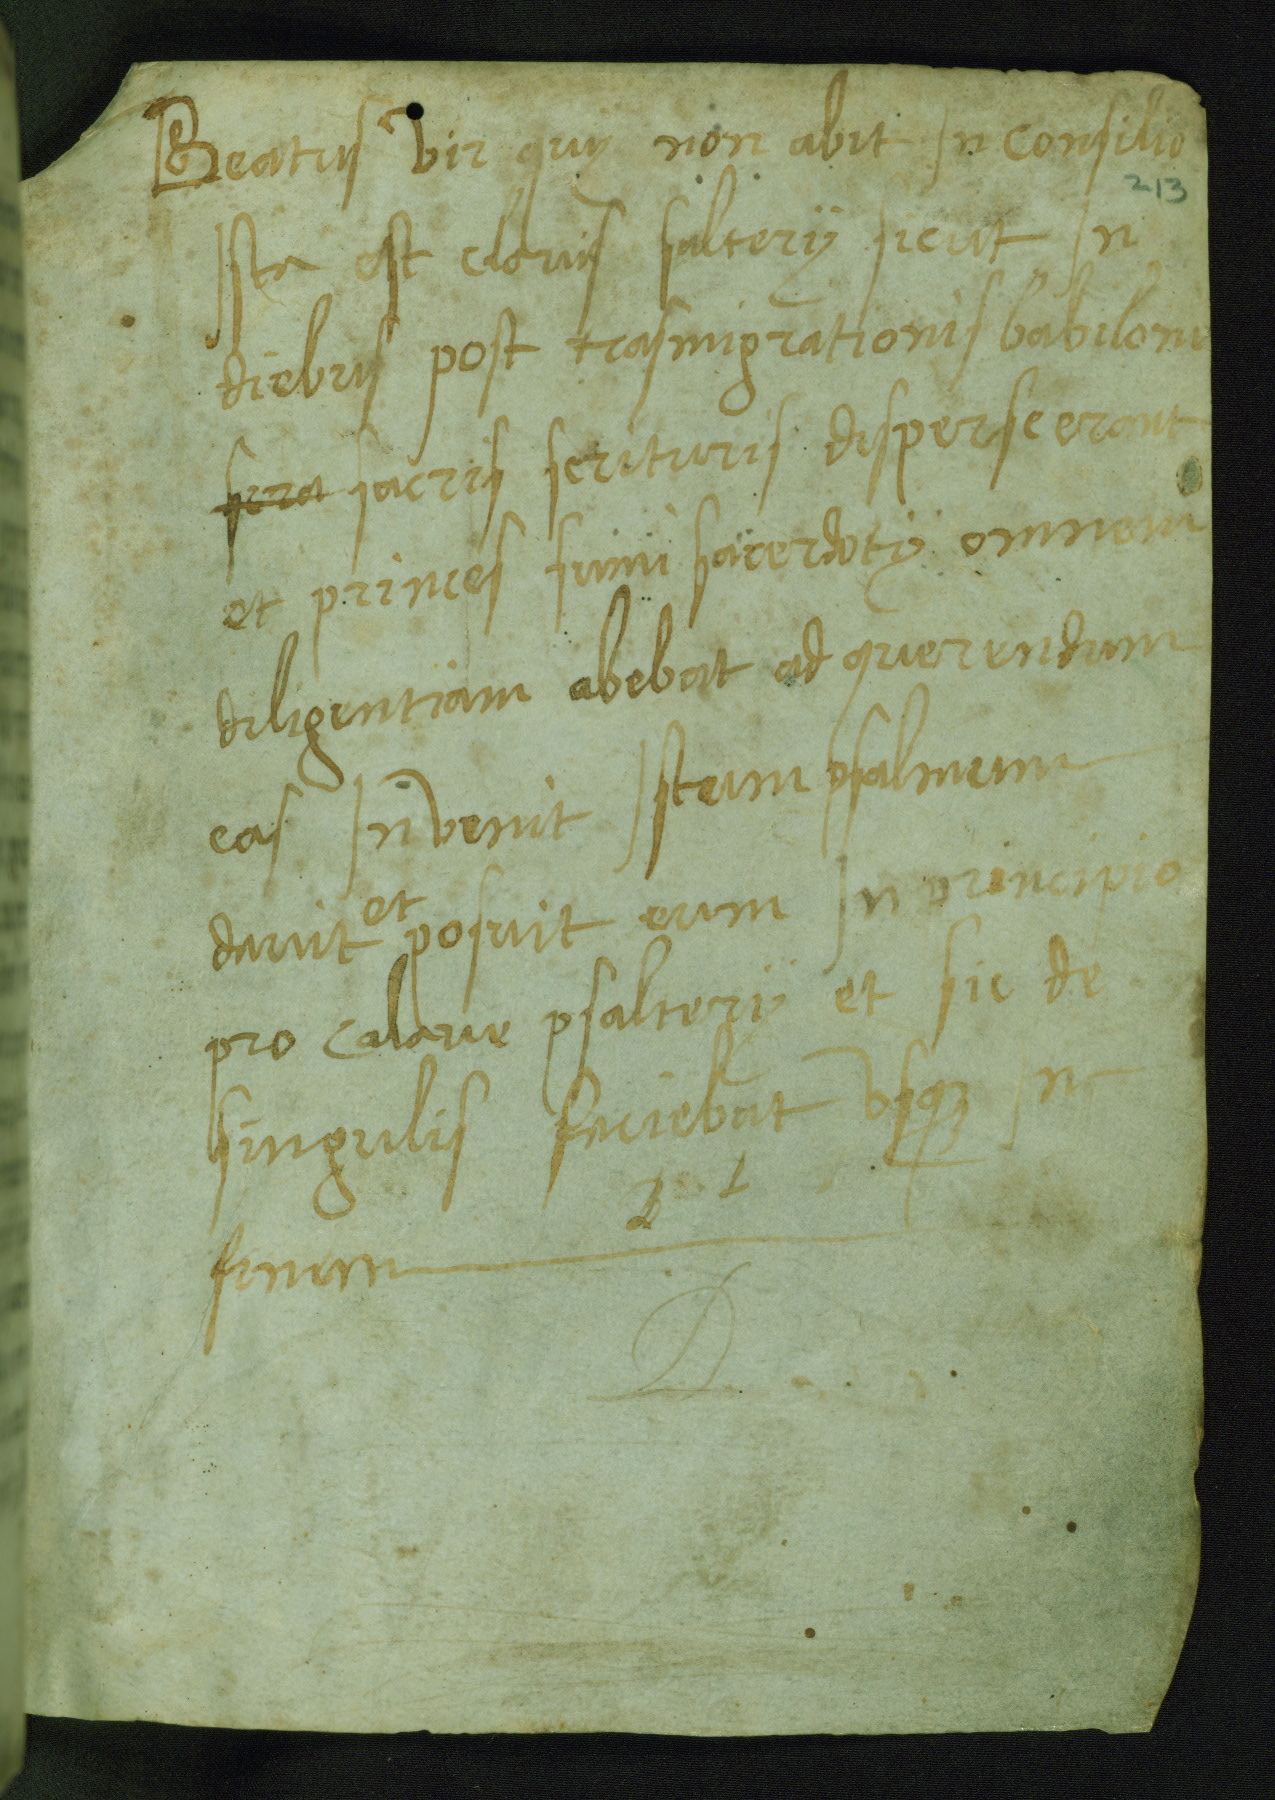 Beatus vir quy non abit In consilio
213
Ista est clavis salterij sicut In
diebus post trasmigrationis babiloni
sicra sacris scrituris disperse erant
et princes sumi sacerdotij omnem
diligentiam abebat ad querendum
eas Invenit Istum psalmum
davit et posuit eum In principio
pro calave psalterij et sic de
singulis faciebat usque In
finem
D